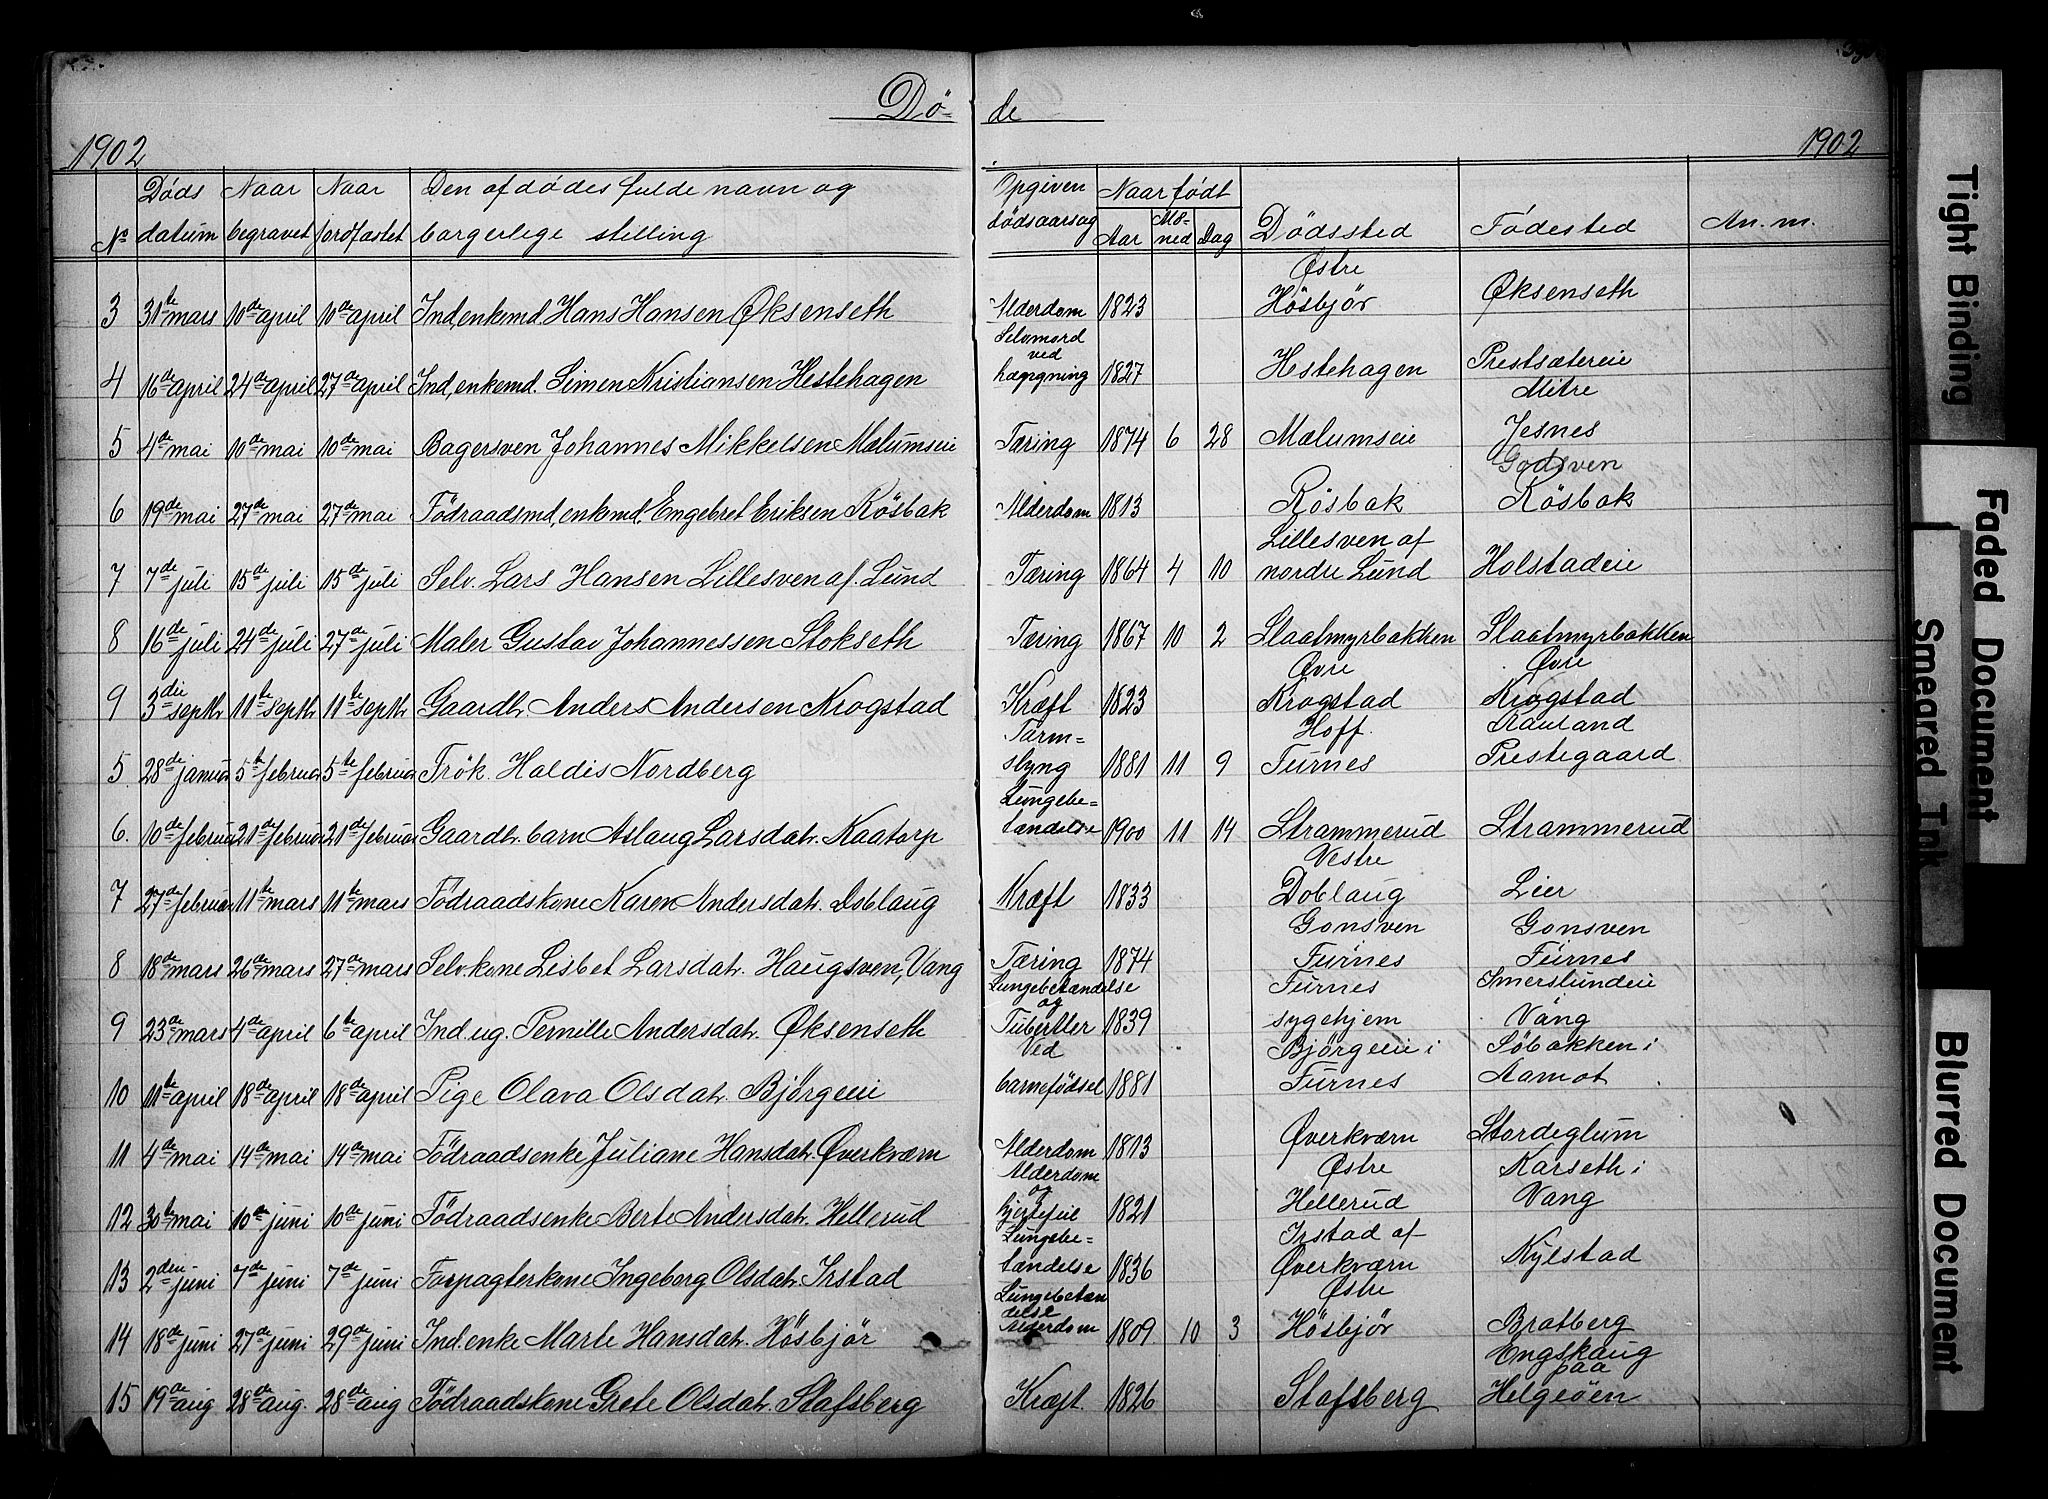 Dö- de
1902 1902
No Døds datum Naar begravet Naar jordfæstet Den afdødes fulde navn og borgerlige stilling Opgiven dødsaarsag Naar født Aar Maaned Dag Dødssted Fødested An.m.
3 31te mars 10de april 10de april Ind, enkemd. Hans Hansen Øksenseth Alderdom 1823 Østre Hösbjör Øksenseth
4 16de april 24de april 27de april Ind, enkemd. Simen Kristiansen Hestehagen Selvmord ved hængning 1827 Hestehagen Prestsætereie Mitre
5 4de mai 10de mai 10de mai Bagersven Johannes Mikkelsen Mælumseie Tæring 1874 6 28 Mælumseie Jesnes
6 19de mai 27de mai 27de mai Födraadsmd, enkmd. Engebret Eriksen Rösbak Alderdom 1813 Rösbak Godsven Rösbak
7 7de juli 15de juli 15de juli Selv. Lars Hansen Lillesven af. Lund Tæring 1864 4 10 Lillesven af nordre Lund Holstadeie
8 16de juli 24de juli 27de juli Maler Gustav Johannessen Stokseth Tæring 1867 10 2 Slaatmyrbakken Slaatmyrbakken
9 3die septbr 11te septbr 11te septbr Gaardbr. Anders Andersen Krogstad Kræft 1823 Øvre Krogstad Øvre Krogstad
5 28de januar 5te februar 5te februar Frök. Haldis Nordberg Tarmslyng 1881 11 9 Hoff. Furnes Rauland Prestegaard
6. 10de februar 21de februar 21de februar Gaardbr. barn Aslaug Larsdatr. Kaatorp Lungebetændelse 1900 11 14 Strammerud Strammerud
7 27de februar 11te mars 11te mars Födraadskone Karen Andersdatr. Doblaug Kræft 1833 Vestre Doblaug Lier
8 18de mars 26de mars 27de mars Selv.kone Lisbet Larsdatr. Haugsven, Vang Tæring 1874 Gonsven Furnes Gonsven Furnes
9 23de mars 4de april 6te april Ind. ug. Pernille Andersdatr. Øksenseth Lungebetændelse og Tuberkler 1839 Furnes sygehjem Imerslundeie Vang
10 11te april 18de april 18de april Pige Olava Olsdatr. Bjørgeeie Ved barnefödsel 1881 Bjørgeeie i Furnes Söbakken i Aamot
11 4de mai 14de mai 14de mai Födraadsenke Juliane Hansdatr. Øverkværn Alderdom 1813 Øverkværn Stordeglum
12 30te mai 10de juni 10de juni Födraadsenke Berte Andersdatr. Hellerud Alderdom og hjertefeil 1821 Østre Hellerud Karseth i Vang
13 2den juni 7de juni 7de juni Forpagterkone Ingeborg Olsdatr. Irstad Lungebetændelse 1836 Irstad af Øverkværn Nylstad
14 18de juni 27de juni 29de juni Ind. enke Marte Hansdatr. Hösbjör Lungebetændelse Alderdom 1809 10 3 Østre Hösbjör Bratberg
15 19de aug 28de aug. 28de aug Födraadskone Grete Olsdatr. Stafsberg Kræft. 1826 Stafsberg Engskaug paa Helgeöen
Tight Binding
Faded Document
Smeared Ink
Blurred Document